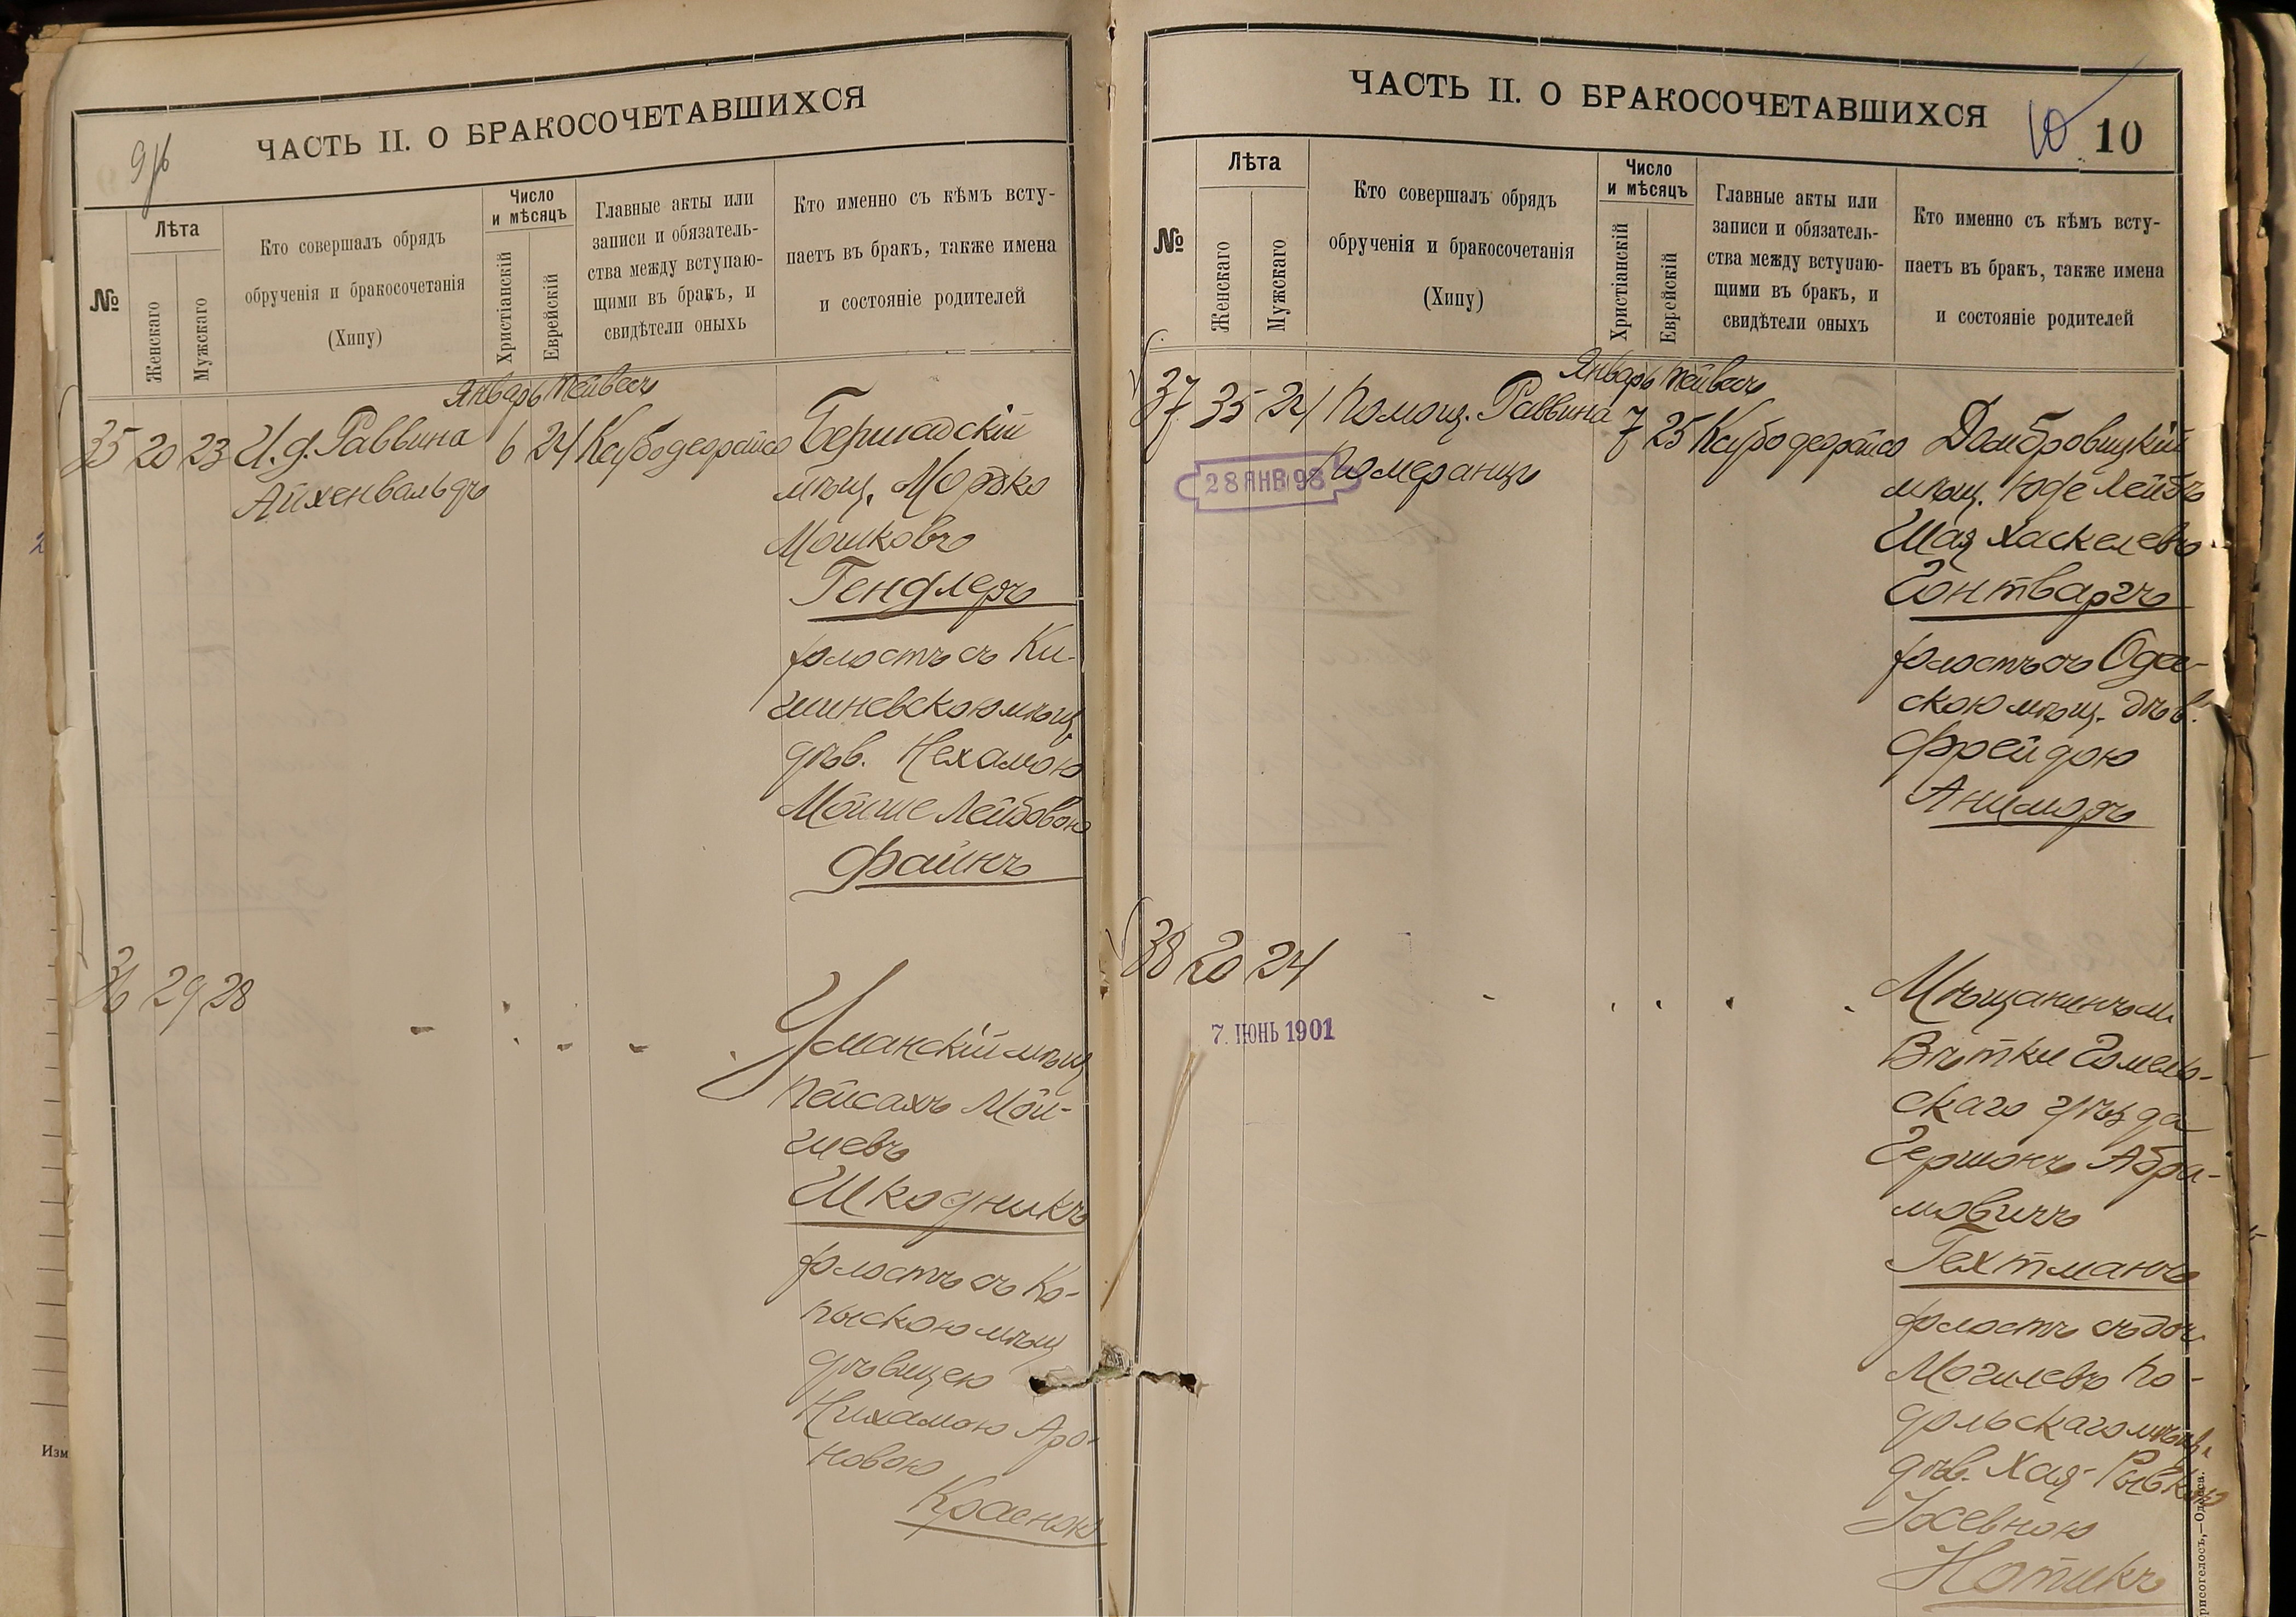 9/б
ЧАСТЬ II. О БРАКОСОЧЕТАВШИХСЯ
№
Лѣта
Женскаго
Мужскаго
Кто совершалъ обрядъ
обрученія и бракосочетанія
(Хипу)
Число
и мѣсяцъ
Христіанскій
Еврейскій
Главные акты или
записи и обязатель-
ства между вступаю-
щими въ бракъ, и
свидѣтели оныхъ
Кто именно съ кѣмъ всту-
паетъ въ бракъ, также имена
и состояніе родителей
Январь Тейвесъ
35 20 23 И. д. Раввина 6 24
Айхенвальдъ
Бершадскій
мѣщ. Мордко
Мошковъ
Гендлеръ
холостъ съ Ки-
шиневскою мѣщ.
дѣв. Нехамою
Мойше Лейбовою
Файнъ
36 29 28
Уманскій мѣщ
Пейсахъ Мой-
шевъ
Шкодникъ
холостъ съ Ко-
пыскою мѣщ
дѣвицею
Нихамою Аро-
новою
Изм
ЧАСТЬ II. О БРАКОСОЧЕТАВШИХСЯ
10
10
№
Лѣта
Женскаго
Мужскаго
Кто совершалъ обрядъ
обрученія и бракосочетанія
(Хипу)
Число
и мѣсяцъ
Христіанскій
Еврейскій
Главные акты или
записи и обязатель-
ства между вступаю-
щими въ бракъ, и
свидѣтели оныхъ
Кто именно съ кѣмъ всту-
паетъ въ бракъ, также имена
и состояніе родителей
Январь Тейвесъ
37 35 24 Помощ. Раввина 7 25
Померанцъ
28 ЯНВ 98
Домбровицкій
мѣщ. Юде Лейбъ
Шая Хаскелевъ
Гонтваргъ
холостъ съ Оде-
скою мѣщ. дѣв.
Фрейдою
38 20 24
7. ІЮНЬ 1901
Мѣщанинъ м.
Вѣтки Гомель-
скаго уѣзда
Гершонъ Абра-
мовичъ
Гехтманъ
холостъ съ доч.
Могилевъ По-
дольскаго мѣщ.
дѣв. Хая-Рывкою
Іосевною
Нотикъ